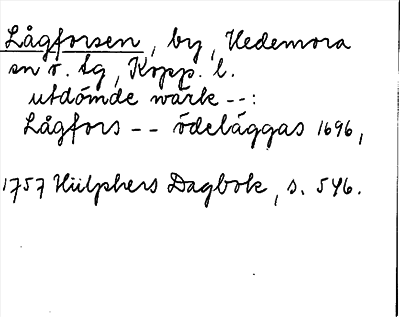 Lågforsen, by, Hedemora
sn o. tg, Kopp. l.
utdömde wärk --:
Lågfors -- ödeläggas 1696,
1757 Hülphers Dagbok, s. 546.